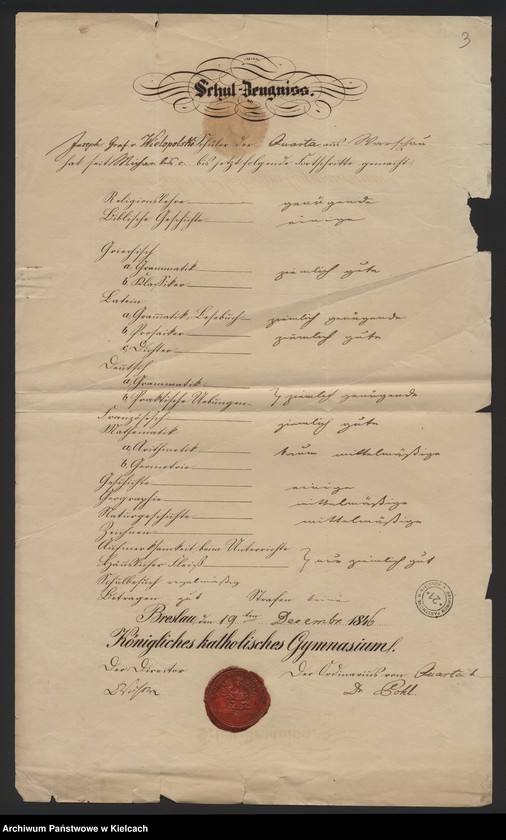 3
Schul-Zeugniss.
Joseph Graf v. Wielopolski Schüler der Quarta aus Warschau
hat seit Michaelis c. bis jetzt folgende Fortschritte gemacht:
Religionslehre genügende
Biblische Geschichte einige
Griechisch
a, Grammatik ziemlich gute
b, Klassiker
Latein
a, Grammatik, Lesebuch ziemlich genügende
b, Prosaiker ziemlich gute
c, Dichter
Deutsch
a, Grammatik
b, Praktische Uebungen ziemlich genügende
Französisch ziemlich gute
Mathematik
a, Arithmetik kaum mittelmäßige
b, Geometrie
Geschichte einige
Geographie mittelmäßige
Naturgeschichte mittelmäßige
Zeichnen
Aufmerksamkeit beim Unterrichte
Häuslicher Fleiß nur ziemlich gut
Schulbesuch regelmäßig
Betragen gut Strafen keine
Breslau, den 19ten Dezembr. 1846
Königliches katholisches Gymnasium.
Der Director Der Ordinarius von Quarta b
Dr Pohl.
Archiwum Państwowe w Kielcach
www.szukajwarchiwach.gov.pl